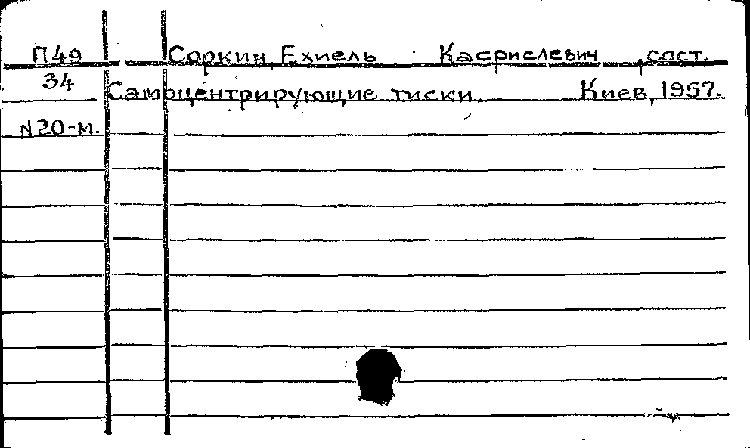 П49 Соркин, Ехиель Касриелевич, сост.
34 Самоцентрирующие тиски. Киев, 1957.
N20-м.